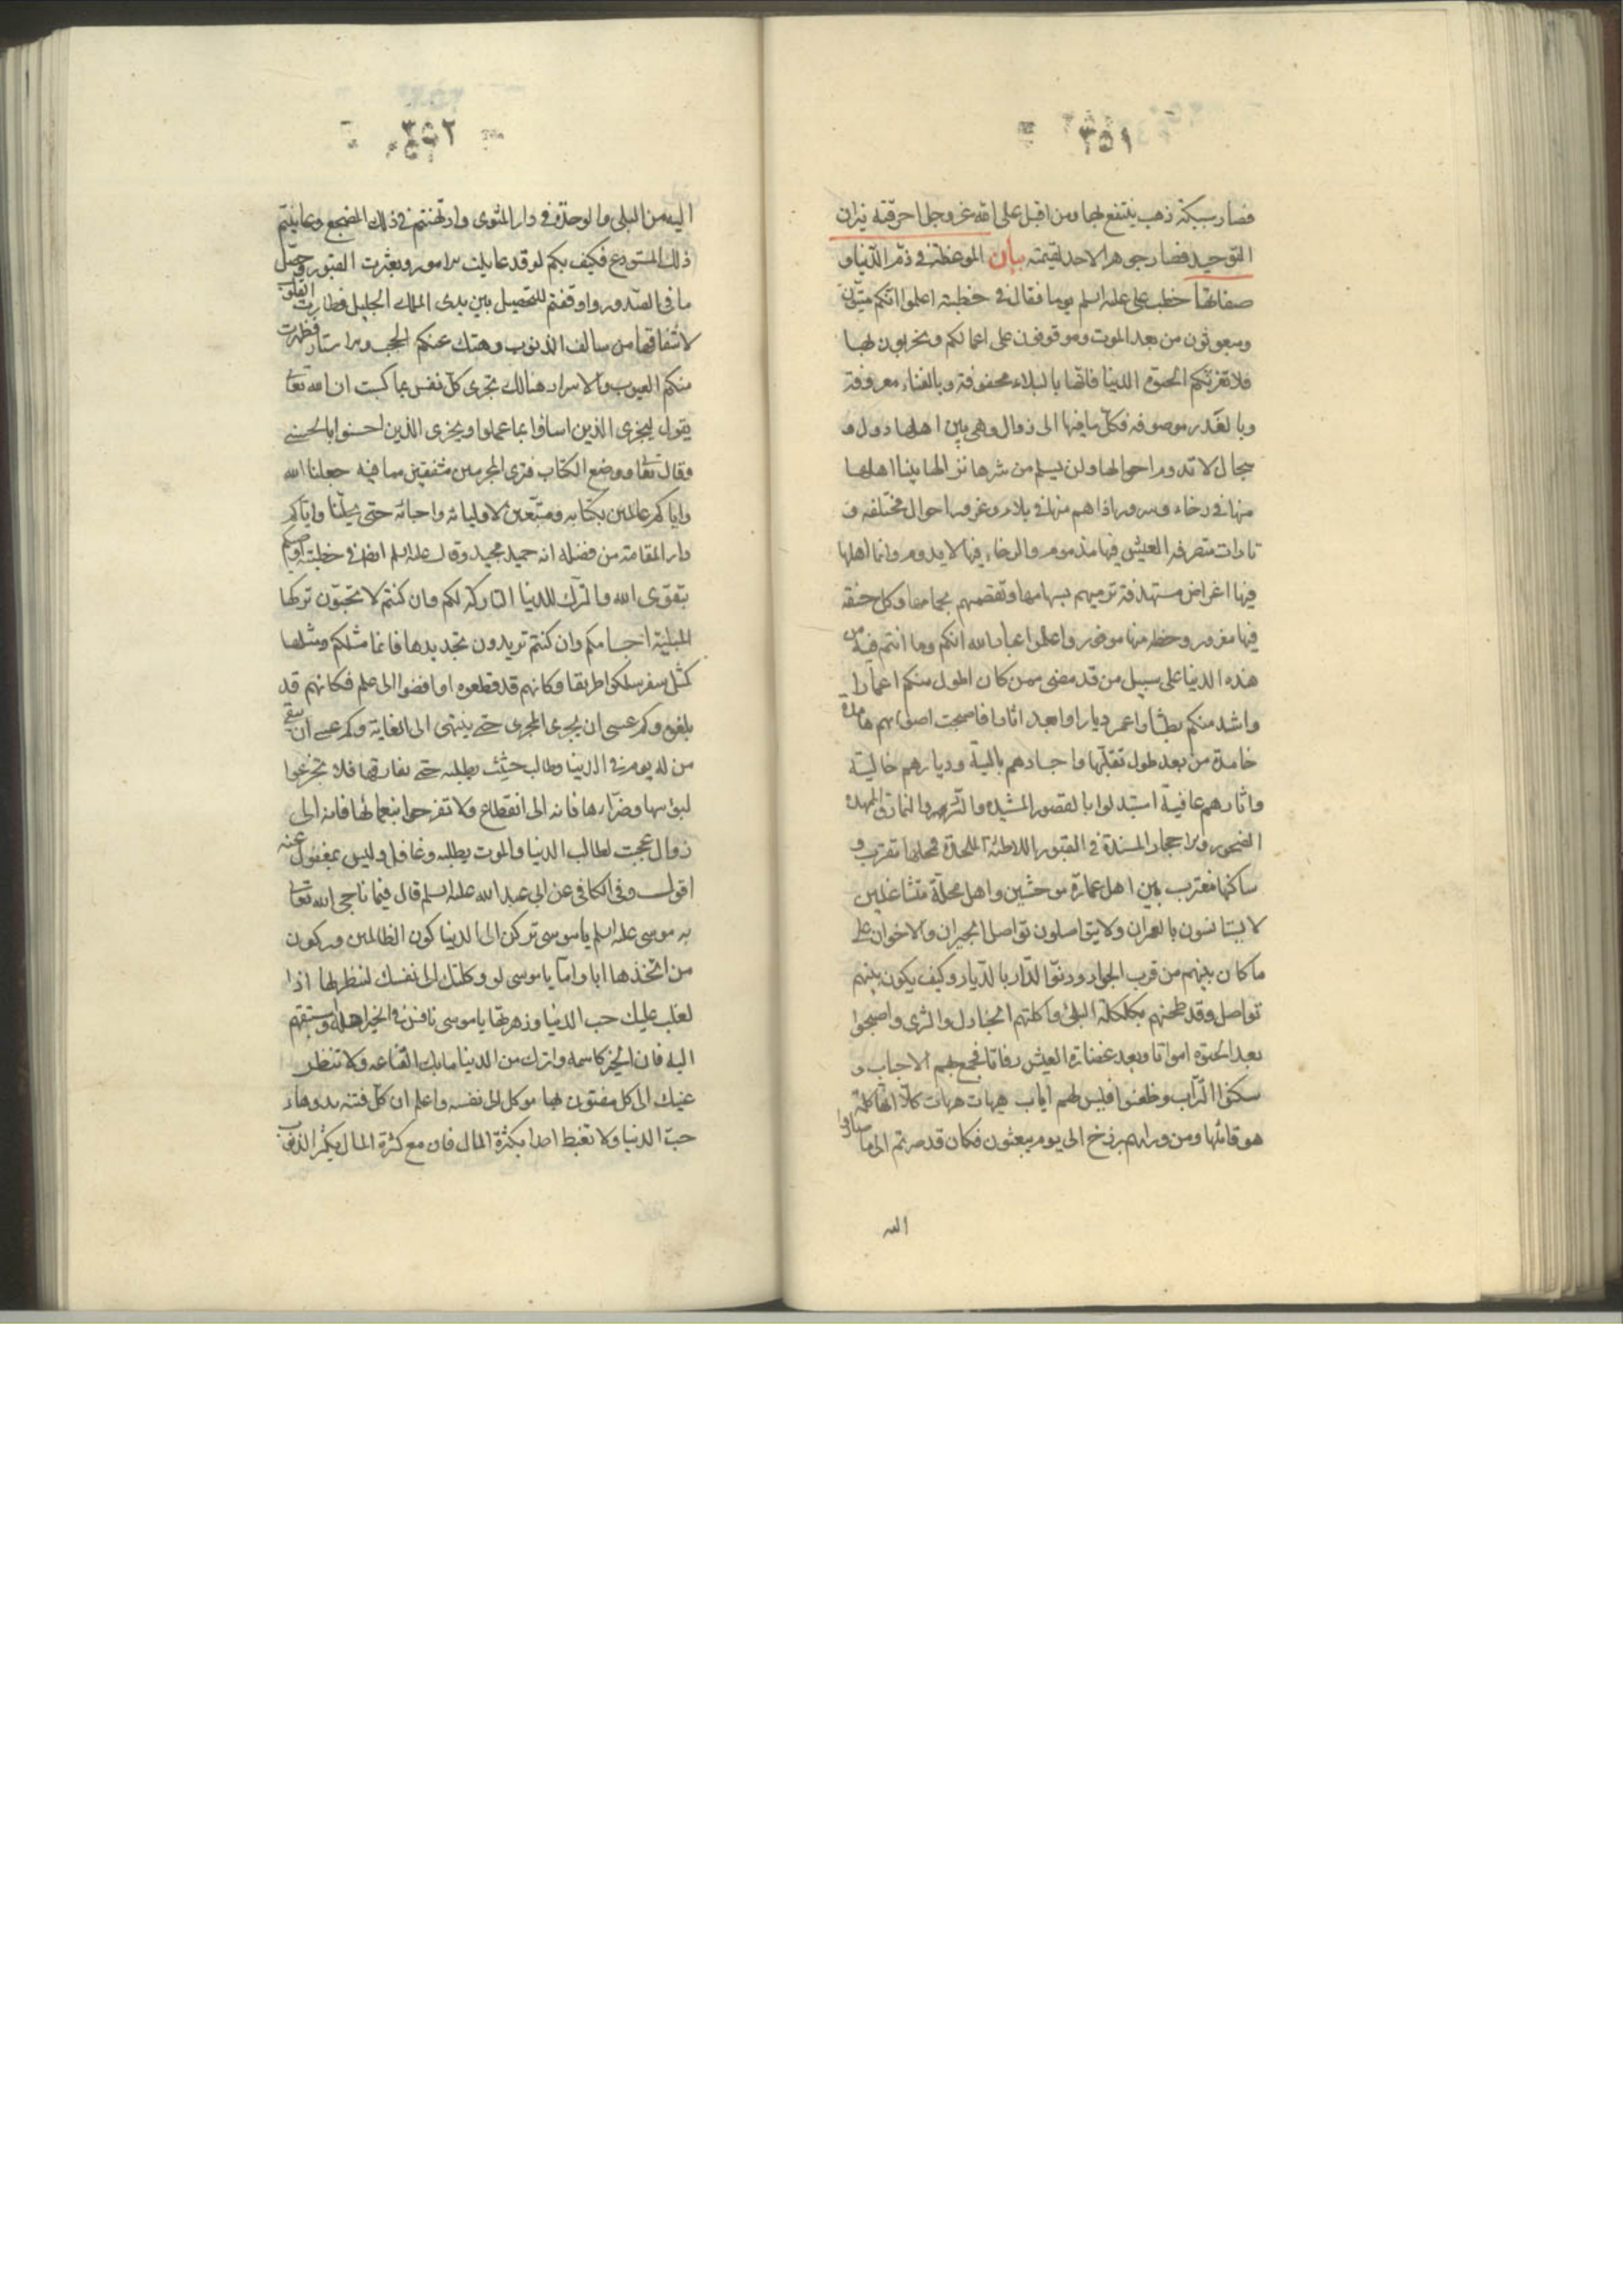 ٣٥١
فصار سبيكة ذهب ينتفع بها ومن اقبل على الله عز وجل احرقته نيران
التوحيد فصار جوهرا لا حد لقيمته بيان الموعظة في ذم الدنيا و
صفاتها خطب علي عليه السلم يوما فقال في خطبته اعلموا انكم ميتون
ومبعوثون من بعد الموت وموقوفون على اعمالكم ومجزيون بها
فلا تغرنكم الحيوة الدنيا فانها بالبلاء محفوفة وبالفناء معروفة
وبالغدر موصوفه فكل ما فيها الى زوال وهي بين اهلها دول و
سجال لا تدوم احوالها ولن يسلم من شرها نزالها بينا اهلها
منها في رخاء وسرور اذا هم منها في بلاء وغرور احوال مختلفه و
تارات متصرفه العيش فيها مذموم والرخاء فيها لا يدوم وانما اهلها
فيها اغراض مستهدفة ترميهم بسهامها وتقصمهم بحمامها وكل حتفه
فيها مقدور وحظه منها موفور واعلموا عباد الله انكم وما انتم فيه من
هذه الدنيا على سبيل من قد مضى ممن كان اطول منكم اعمارا
واشد منكم بطشا واعمر ديارا وابعد اثارا فاصبحت اصواتهم هامدة
خامدة من بعد طول تقلبها واجسادهم بالية وديارهم خالية
واثارهم عافية استبدلوا بالقصور المشيده والسرر والنمارق الممهدة
الصخور والاحجار المسندة في القبور اللاطئة الملحدة فمحلها مقترب و
ساكنها مغترب بين اهل عمارة موحشين واهل محلة متشاغلين
لا يستانسون بالعمران ولا يتواصلون تواصل الجيران والاخوان على
ما كان بينهم من قرب الجوار ودنو الدار بالديار وكيف يكون بينهم
تواصل وقد طحنهم بكلكله البلى واكلتهم الجنادل والثرى واصبحوا
بعد الحيوة امواتا وبعد غضارة العيش رفاتا فجع بهم الاحباب و
سكنوا التراب وظعنوا فليس لهم اياب هيهات هيهات كلا انها كلمة
هو قائلها ومن ورائهم برزخ الى يوم يبعثون فكان قد صرتم الى ما صاروا
اليه
٣٥٢
اليه من البلى والوحدة في دار المثوى وارتهنتم في ذلك المضجع وعاينتم
ذلك المستودع فكيف بكم لو قد عاينت الامور وبعثرت القبور وحصل
ما في الصدور واوقفتم للتحصيل بين يدي الملك الجليل فطارت القلوب
لاشفاقها من سالف الذنوب وهتك عنكم الحجب والاستار فظهرت
منكم العيوب والاسرار هنالك تجزى كل نفس بما كسبت ان الله تعالى
يقول ليجزي الذين اساؤا بما عملوا ويجزي الذين احسنوا بالحسنى
وقال تعالى ووضع الكتاب فترى المجرمين مشفقين مما فيه جعلنا الله
واياكم عاملين بكتابه ومتبعين لاوليائه واحبائه حتى يحلنا واياكم
دار المقامة من فضله انه حميد مجيد وقال عليه السلم ايضا في خطبته اوصيكم
بتقوى الله والترك للدنيا التاركة لكم وان كنتم لا تحبون تركها
المبلية اجسامكم وان كنتم تريدون تجديدها فانما مثلكم ومثلها
كمثل سفر سلكوا طريقا وكانهم قد قطعوه او افضوا الى علم فكانهم قد
بلغوه وكم عسى ان يجري المجري حتى ينتهي الى الغاية وكم عسى ان يبقى
من له يوم في الدنيا وطالب حثيث يطلبه حتى يفارقها فلا تجزعوا
لبؤسها وضرائها فانه الى انقطاع ولا تفرحوا بنعمائها فانه الى
زوال عجبت لطالب الدنيا والموت يطلبه وغافل وليس بمغفول عنه
اقول وفي الكافي عن ابي عبد الله عليه السلم قال فيما ناجى الله تعالى
به موسى عليه السلم يا موسى لا تركن الى الدنيا ركون الظالمين وركون
من اتخذها ابا واما يا موسى لو وكلتك الى نفسك لتنظر لها اذا
لغلب عليك حب الدنيا وزهرتها يا موسى نافس في الخير اهله واستبقهم
اليه فان الخير كاسمه واترك من الدنيا ما بك الغناء عنه ولا تنظر
عينك الى كل مفتون بها موكل الى نفسه واعلم ان كل فتنه بدوها
حب الدنيا ولا تغبط احدا بكثرة المال فان مع كثرة المال يكثر الذنوب